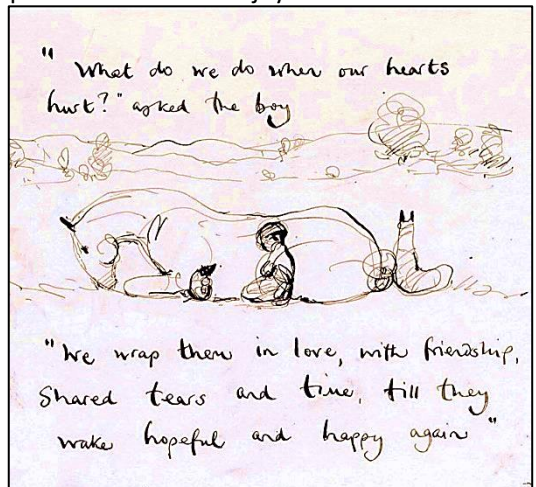 " What do we do when our hearts
hurt?" asked the boy
"We wrap them in love, with friendship,
Shared tears and time, till they
wake hopeful and happy again"